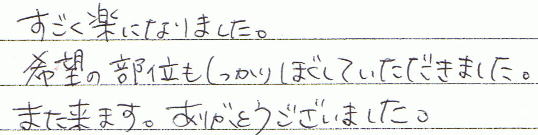 すごく楽になりました。
希望の部位もしっかりほぐしていただきました。
また来ます。ありがとうございました。